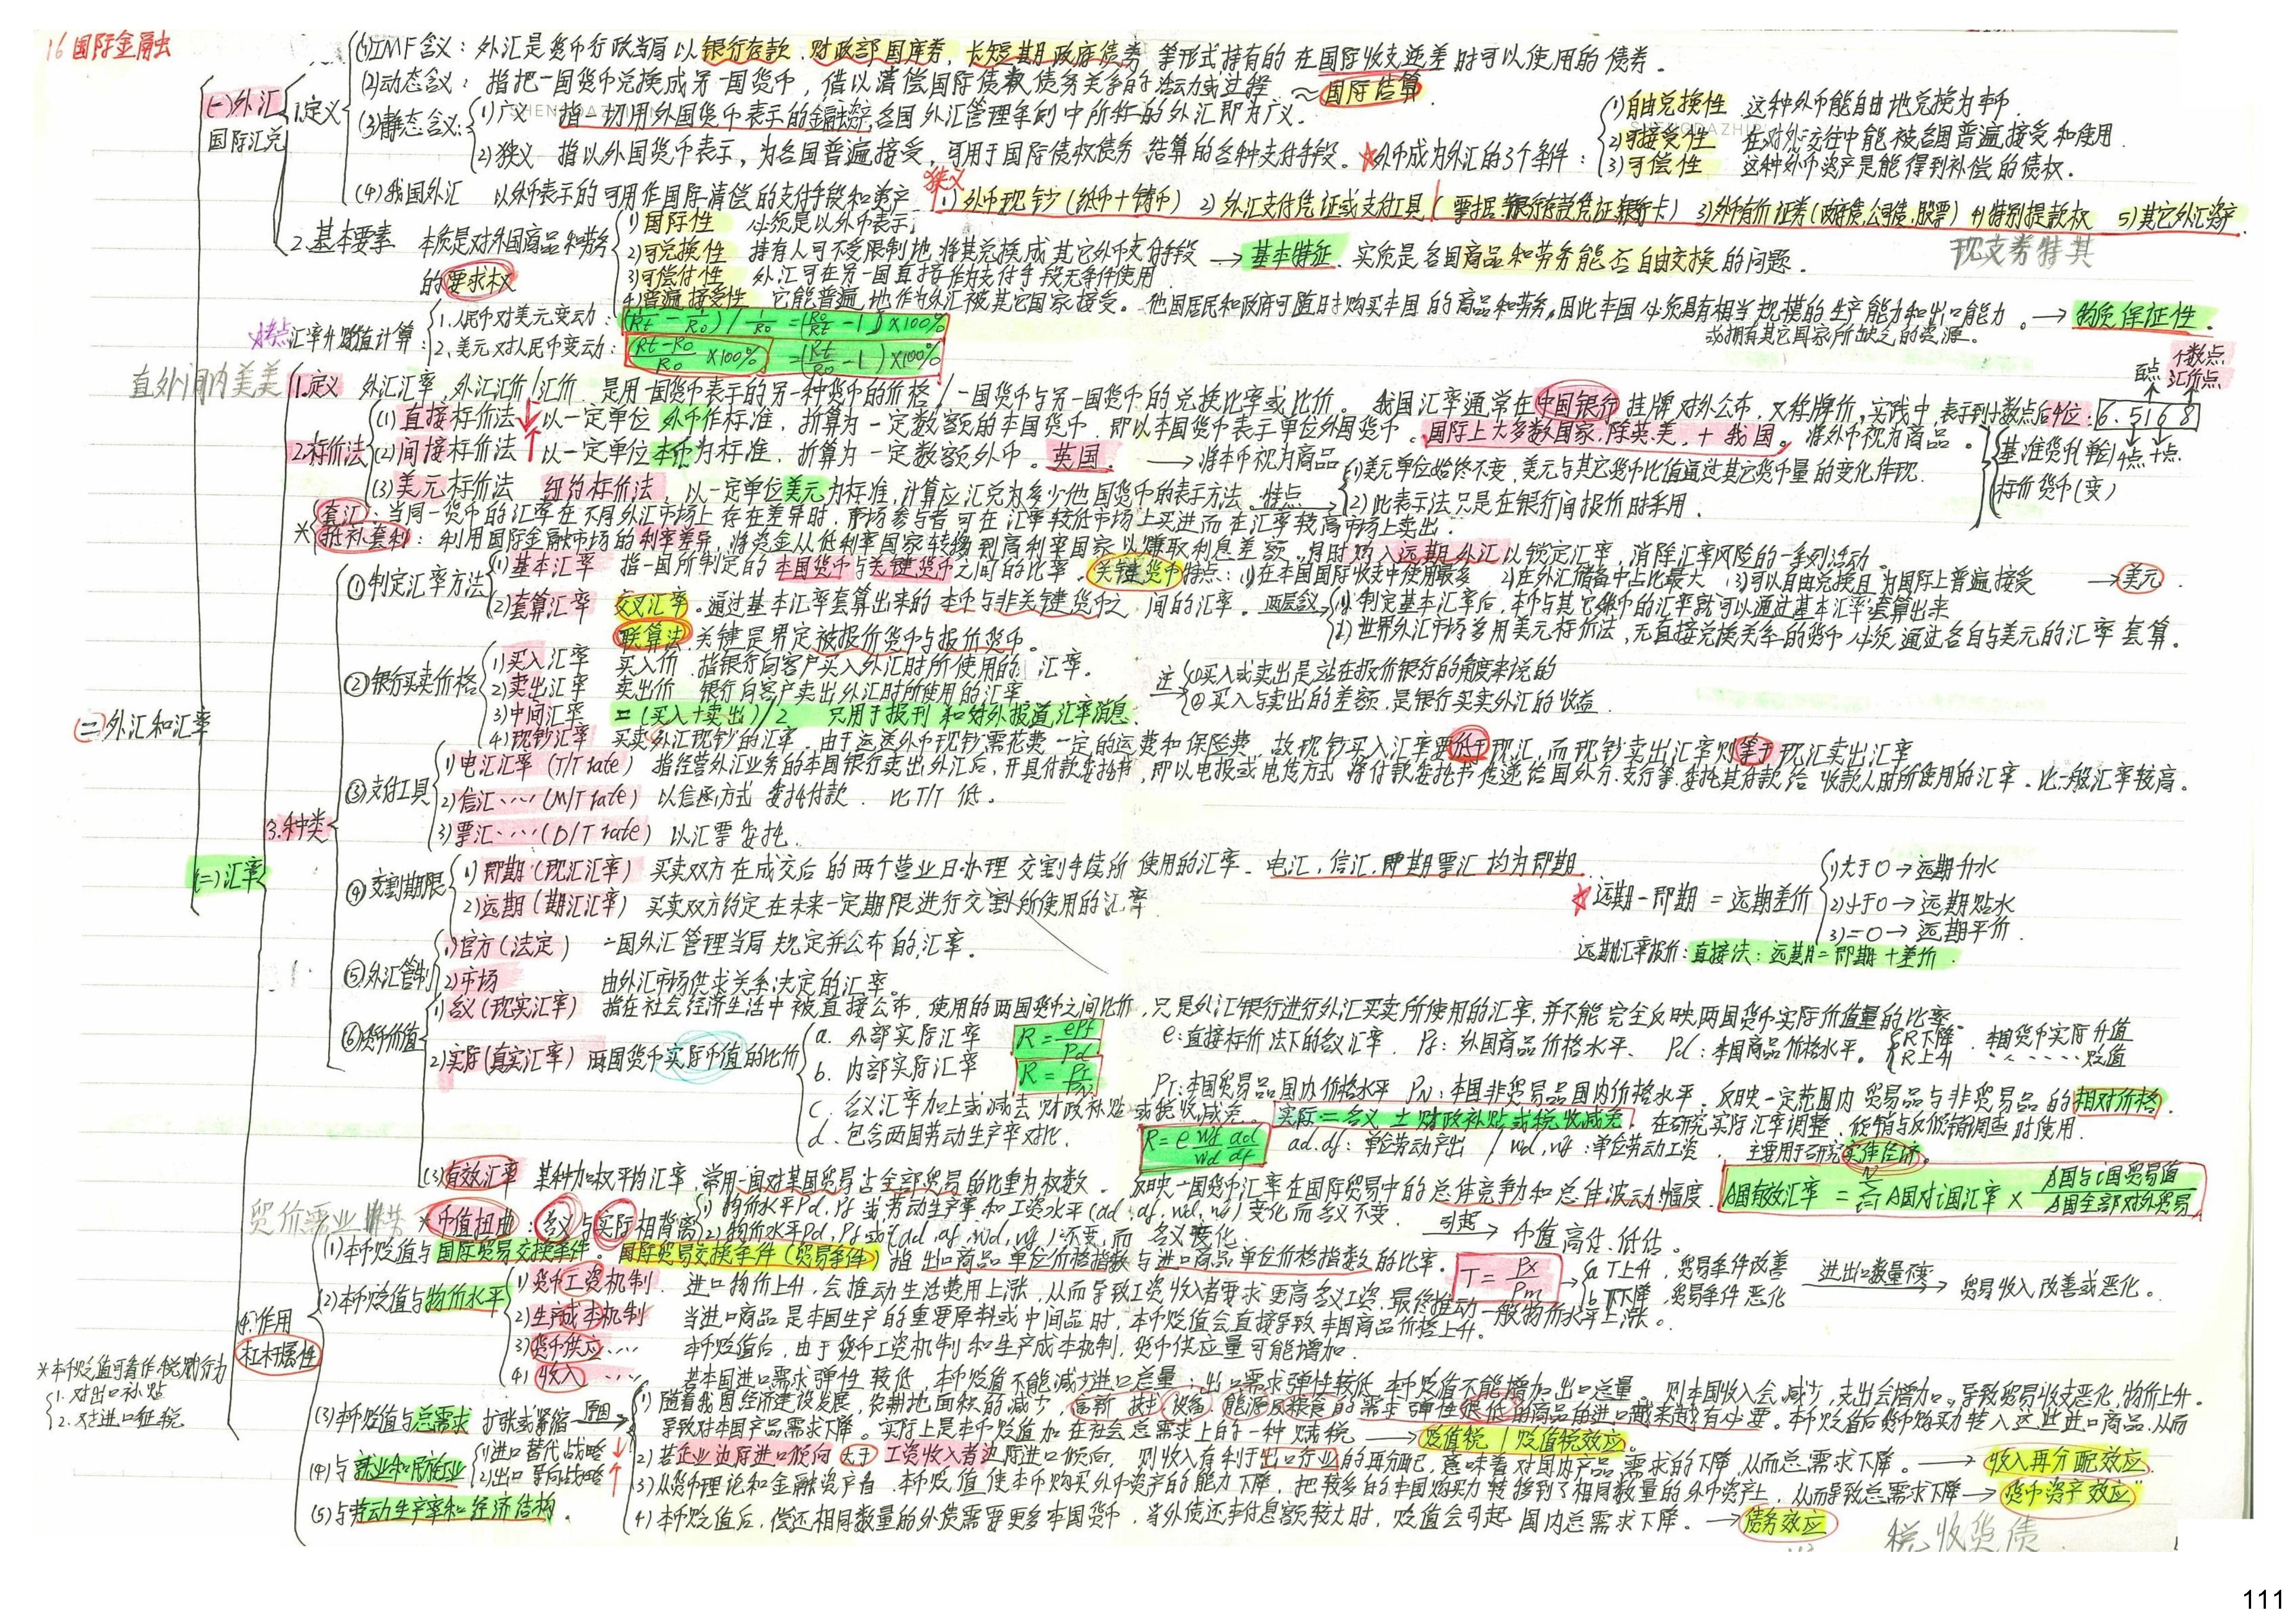 16 国际金融
(1)IMF含义：外汇是货币行政当局以银行存款、财政部国库券、长短期政府债券等形式持有的在国际收支逆差时可以使用的债券。
(2)动态含义：指把一国货币兑换成另一国货币，借以清偿国际债权债务关系的活动或过程 ≈国际结算
(一)外汇 1.定义
国际汇兑
(3)静态含义：1)广义 指一切用外国货币表示的金融资产，各国外汇管理条例中所称的外汇即为广义。
2)狭义 指以外国货币表示，为各国普遍接受，可用于国际债权债务结算的各种支付手段。
★外币成为外汇的3个条件：
(1)自由兑换性 这种外币能自由地兑换为本币
(2)可接受性 在对外交往中能被各国普遍接受和使用.
(3)可偿性 这种外币资产是能得到补偿的债权.
(4)我国外汇 以外币表示的可用作国际清偿的支付手段和资产
狭义
1)外币现钞(纸币+铸币) 2)外汇支付凭证或支付工具(票据、银行存款凭证、银行卡) 3)外币有价证券(政府债,公司债,股票) 4)特别提款权 5)其它外汇资产
现支券特其
2.基本要素 本质是对外国商品和劳务的要求权
1)国际性 必须是以外币表示；
2)可兑换性 持有人可不受限制地将其兑换成其它外币支付手段 →基本特征 实质是各国商品和劳务能否自由交换的问题.
3)可偿付性 外汇可在另一国直接作为支付手段无条件使用
4)普遍接受性 它能普遍地作为外汇被其它国家接受。他国居民和政府可随时购买本国的商品和劳务,因此本国必须具有相当规模的生产能力和出口能力。→物质保证性.
或拥有其它国家所缺乏的资源。
考点 汇率升贬值计算：
1.人民币对美元变动：(1/Rt − 1/R0)/ 1/R0 =(R0/Rt −1)×100%
2.美元对人民币变动：Rt−R0/R0 ×100% =(Rt/R0 −1)×100%
直外间内美美
1.定义 外汇汇率,外汇汇价/汇价.是用一国货币表示的另一种货币的价格/一国货币与另一国货币的兑换比率或比价。我国汇率通常在中国银行挂牌对外公布,又称牌价,实践中,表示到小数点后4位：6.5168
百点 个数点 汇价点
千点 十点
基准货币(单位)
标价货币(变)
2.标价法
(1)直接标价法↓以一定单位外币作标准，折算为一定数额的本国货币，即以本国货币表示单位外国货币。国际上大多数国家,除英.美.+我国。将外币视为商品。
(2)间接标价法↑以一定单位本币为标准，折算为一定数额外币。英国。→将本币视为商品
(3)美元标价法 纽约标价法，以一定单位美元为标准,计算应汇兑为多少他国货币的表示方法.特点→
(1)美元单位始终不变,美元与其它货币比值通过其它货币量的变化体现.
(2)此表示法只是在银行间报价时采用.
套汇：当同一货币的汇率在不同外汇市场上存在差异时,市场参与者可在汇率较低市场上买进而在汇率较高市场上卖出.
*抵补套利：利用国际金融市场的利率差异,将资金从低利率国家转移到高利率国家以赚取利息差额.同时购入远期外汇以锁定汇率,消除汇率风险的一系列活动。
(二)外汇和汇率
(二)汇率
3.种类
①制定汇率方法
(1)基本汇率 指一国所制定的本国货币与关键货币之间的比率.关键货币特点：(1)在本国国际收支中使用最多 (2)在外汇储备中占比最大 (3)可以自由兑换且为国际上普遍接受 →美元.
(2)套算汇率 交叉汇率。通过基本汇率套算出来的本币与非关键货币之间的汇率。两层含义
(1)制定基本汇率后,本币与其它外币的汇率就可以通过基本汇率套算出来
(2)世界外汇市场多用美元标价法,无直接兑换关系的货币必须通过各自与美元的汇率套算。
联算法.关键是界定被报价货币与报价货币。
②银行买卖价格
1)买入汇率 买入价.指银行向客户买入外汇时所使用的汇率.
2)卖出汇率 卖出价.银行向客户卖出外汇时所使用的汇率.
注 ①买入或卖出是站在报价银行的角度来说的
②买入与卖出的差额.是银行买卖外汇的收益.
3)中间汇率 =(买入+卖出)/2 只用于报刊和对外报道汇率消息.
4)现钞汇率 买卖外汇现钞的汇率.由于运送外币现钞需花费一定的运费和保险费,故现钞买入汇率要低于现汇,而现钞卖出汇率则等于现汇卖出汇率
③支付工具
1)电汇汇率(T/T rate) 指经营外汇业务的本国银行卖出外汇后,开具付款委托书,即以电报或电传方式将付款委托书传递给国外分.支行等.委托其付款给收款人时所使用的汇率.比一般汇率较高。
2)信汇……(M/T rate) 以信函方式委托付款.比T/T低。
3)票汇……(D/T rate) 以汇票委托.
④交割期限
1)即期(现汇汇率) 买卖双方在成交后的两个营业日办理交割手续所使用的汇率.电汇,信汇,即期票汇均为即期.
2)远期(期汇汇率) 买卖双方约定在未来一定期限进行交割所使用的汇率.
★远期−即期=远期差价
1)大于0→远期升水
2)小于0→远期贴水
3)=0→远期平价.
远期汇率报价：直接法：远期=即期+差价.
⑤外汇管制
1)官方(法定) 一国外汇管理当局规定并公布的汇率.
2)市场 由外汇市场供求关系决定的汇率。
⑥货币价值
1)名义(现实汇率) 指在社会经济生活中被直接公布,使用的两国货币之间比价,只是外汇银行进行外汇买卖所使用的汇率,并不能完全反映两国货币实际价值量的比率。
2)实际(真实汇率) 两国货币实际币值的比价
a.外部实际汇率 R=ePf/Pd e:直接标价法下的名义汇率.Pf:外国商品价格水平、Pd:本国商品价格水平。R下降.本国货币实际升值 R上升……贬值
b.内部实际汇率 R=PT/PN PT:本国贸易品国内价格水平 PN:本国非贸易品国内价格水平.反映一定范围内贸易品与非贸易品的相对价格.
c.名义汇率加上或减去财政补贴或税收减免.实际=名义±财政补贴或税收减免.在研究实际汇率调整、倾销与反倾销调查时使用.
d.包含两国劳动生产率对比.R=e wf/wd ad/df ad.df:单位劳动产出/wd,wf:单位劳动工资.主要用于研究实体经济。
(3)有效汇率 某种加权平均汇率,常用一国对某国贸易占全部贸易的比重为权数.反映一国货币汇率在国际贸易中的总体竞争力和总体波动幅度.
A国有效汇率=Σ A国对i国汇率×A国与i国贸易值/A国全部对外贸易
*币值扭曲：名义与实际相背离
(1)物价水平Pd,Pf或劳动生产率和工资水平(ad,af,wd,wf)变化而名义不变.
(2)物价水平Pd,Pf或(ad,af,wd,wf)不变,而名义变化.
引起→币值高估.低估。
4.作用
杠杆属性
(1)本币贬值与国际贸易交换条件。国际贸易交换条件(贸易条件)指出口商品单位价格指数与进口商品单位价格指数的比率. T=Px/Pm
a T上升,贸易条件改善
b T下降,贸易条件恶化
进出口数量不变→贸易收入改善或恶化。
(2)本币贬值与物价水平
1)货币工资机制.进口物价上升,会推动生活费用上涨,从而导致工资收入者要求更高名义工资,最终推动一般物价水平上涨。
2)生产成本机制 当进口商品是本国生产的重要原料或中间品时,本币贬值会直接导致本国商品价格上升。
3)货币供应… 本币贬值后,由于货币工资机制和生产成本机制,货币供应量可能增加.
4)收入… 若本国进口需求弹性较低,本币贬值不能减少进口总量；出口需求弹性较低,本币贬值不能增加出口总量。则本国收入会减少,支出会增加,导致贸易收支恶化,物价上升.
*本币贬值可看作税赋行为
1.对出口补贴
2.对进口征税
(3)本币贬值与总需求 扩张或紧缩 原因→
1)随着我国经济建设发展,农耕地面积的减少,高新技术设备,能源及粮食的需求弹性很低的商品的进口越来越有必要。本币贬值后货币购买力转入这些进口商品,从而
导致对本国产品需求下降。实际上是本币贬值加在社会总需求上的一种赋税→贬值税/贬值税效应。
2)若企业边际进口倾向大于工资收入者边际进口倾向,则收入有利于出口行业的再分配,意味着对国内产品需求的下降,从而总需求下降。→收入再分配效应.
3)从货币理论和金融资产看.本币贬值使本币购买外币资产的能力下降,把较多的本国购买力转移到了相同数量的外币资产上,从而导致总需求下降→货币资产效应
4)本币贬值后,偿还相同数量的外债需要更多本国货币,当外债还本付息额较大时,贬值会引起国内总需求下降。→债务效应
(4)与就业和民族工业
1)进口替代战略↓
2)出口导向战略↑
(5)与劳动生产率和经济结构.
税收货债
111